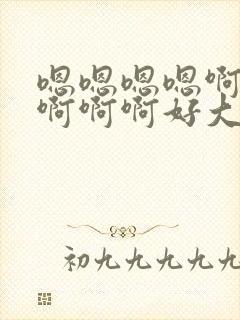 嗯嗯嗯嗯啊
啊啊啊好大
初九九九九九